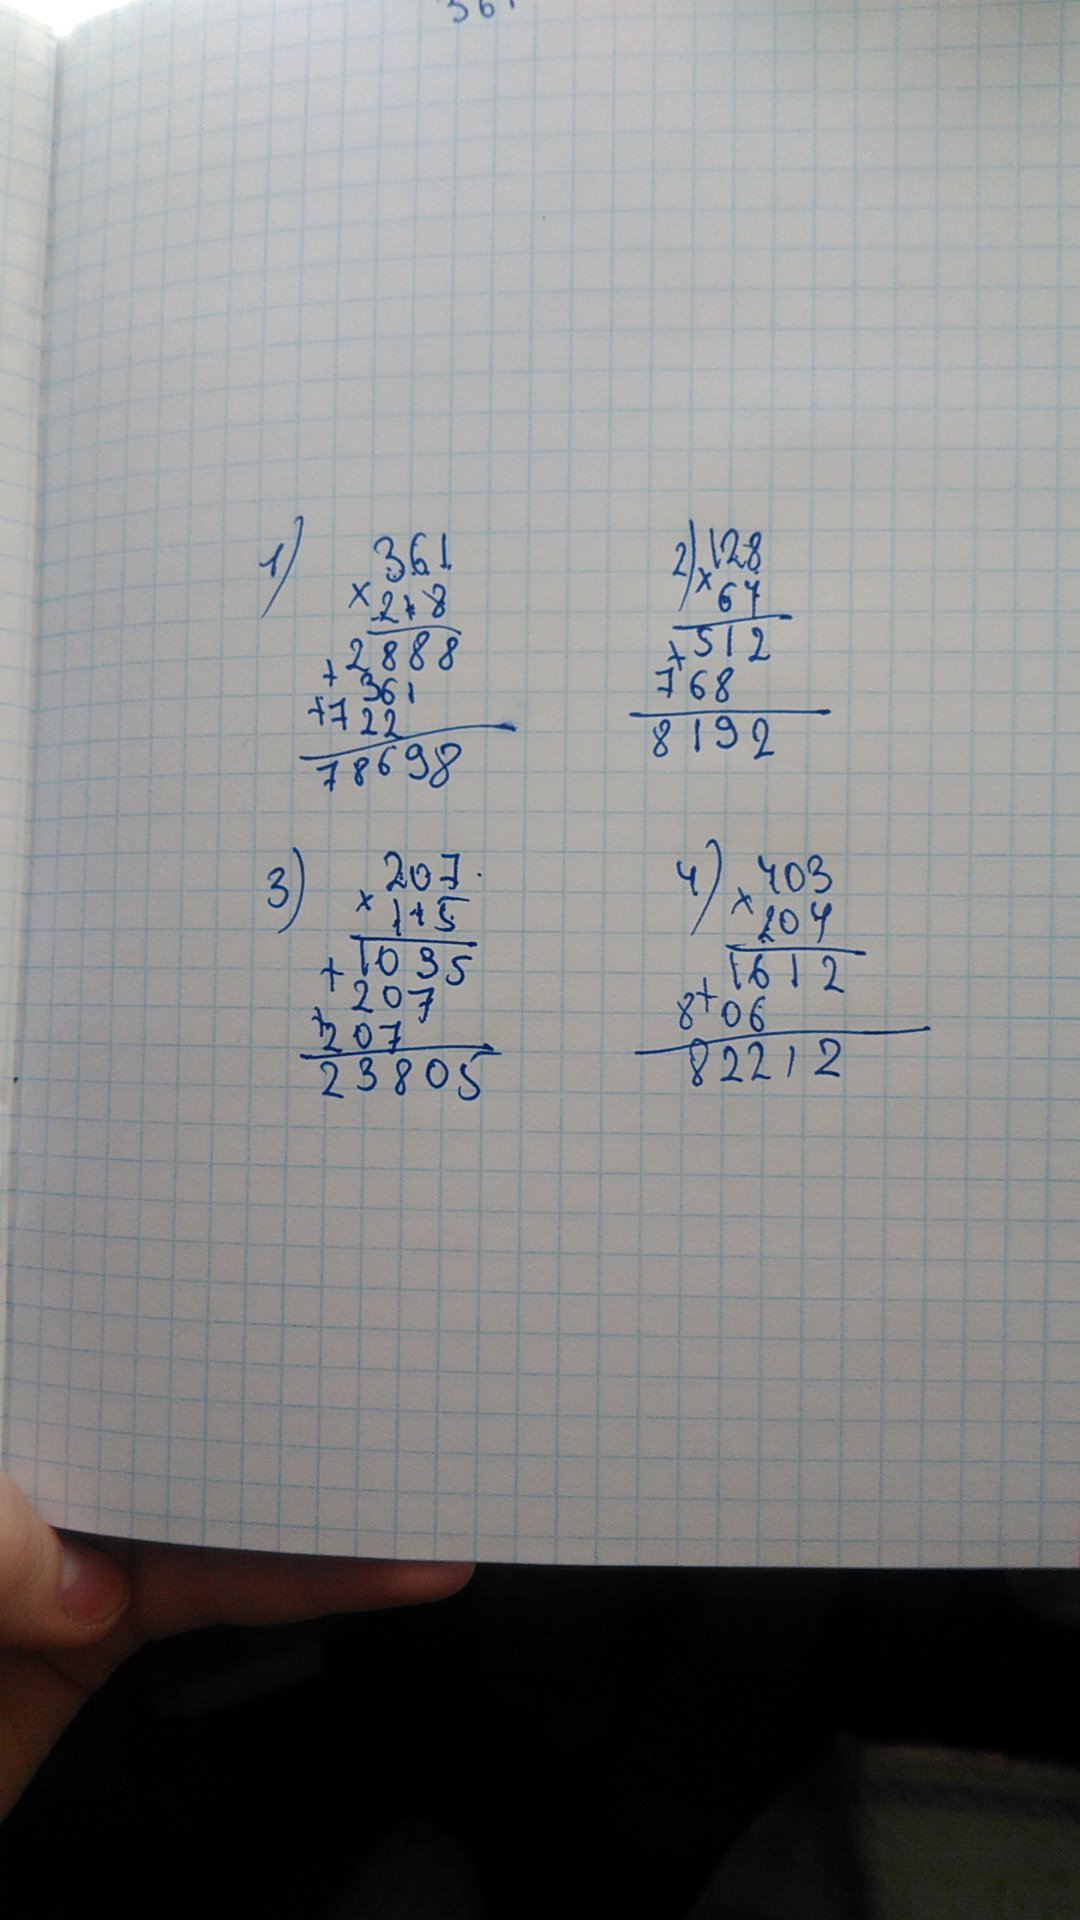 361
1) 361
× 218
2888
+ 361
+ 722
78698
2) 128
× 64
512
+ 768
8192
3) 207
× 115
1035
+ 207
+ 207
23805
4) 403
× 204
1612
+ 806
82212